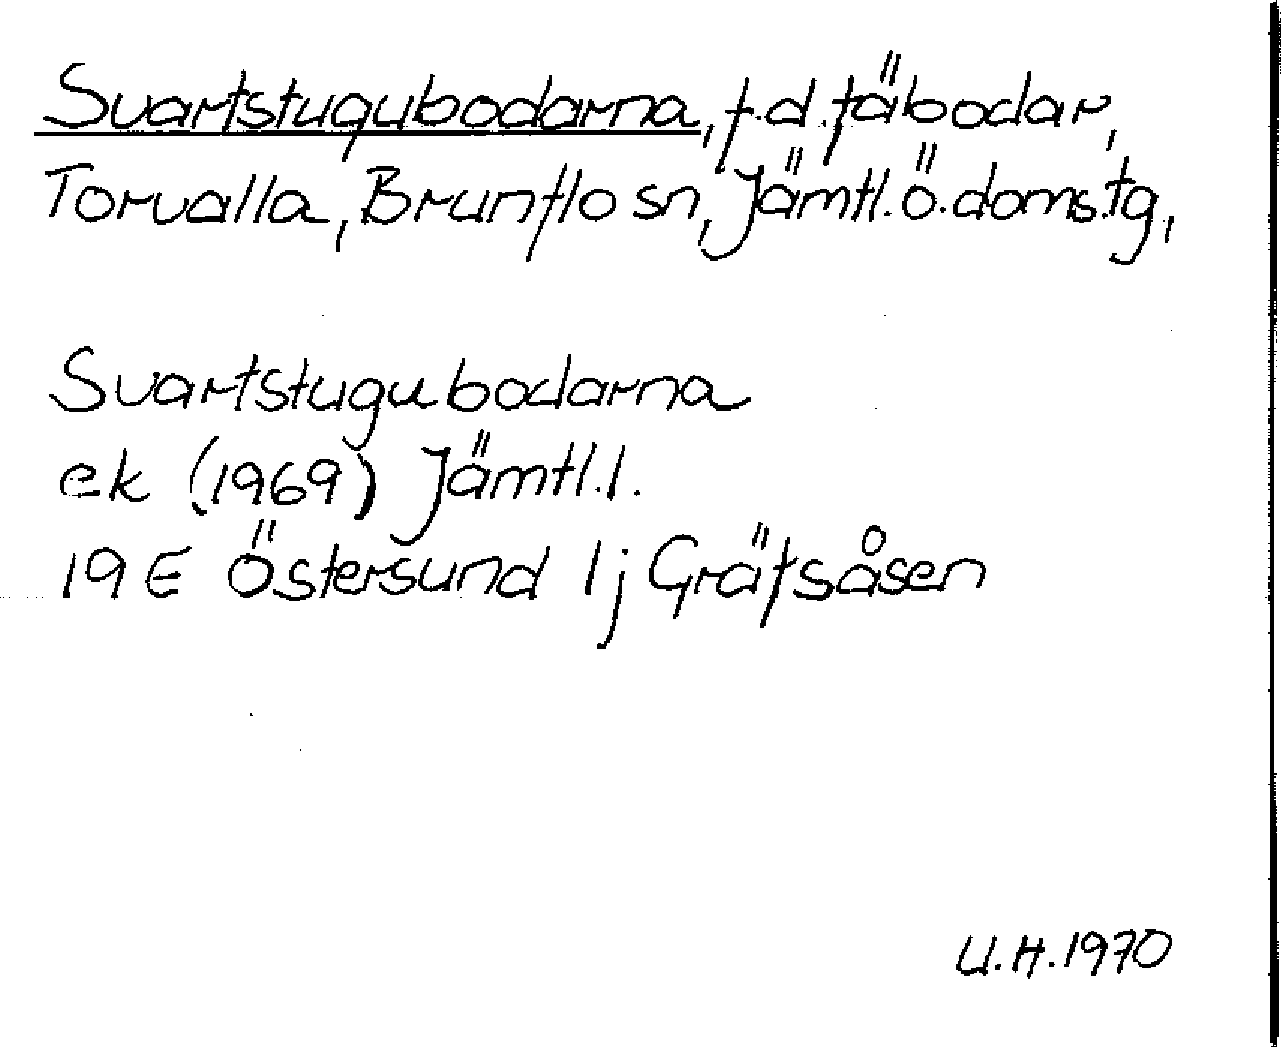 Svartstugubodarna, f.d. fäbodar,
Torvalla, Brunflo sn, Jämtl.ö.doms.tg,
Svartstugubodarna
ek (1969) Jämtl.l.
19 E Östersund 1j Gräfsåsen
U.H.1970